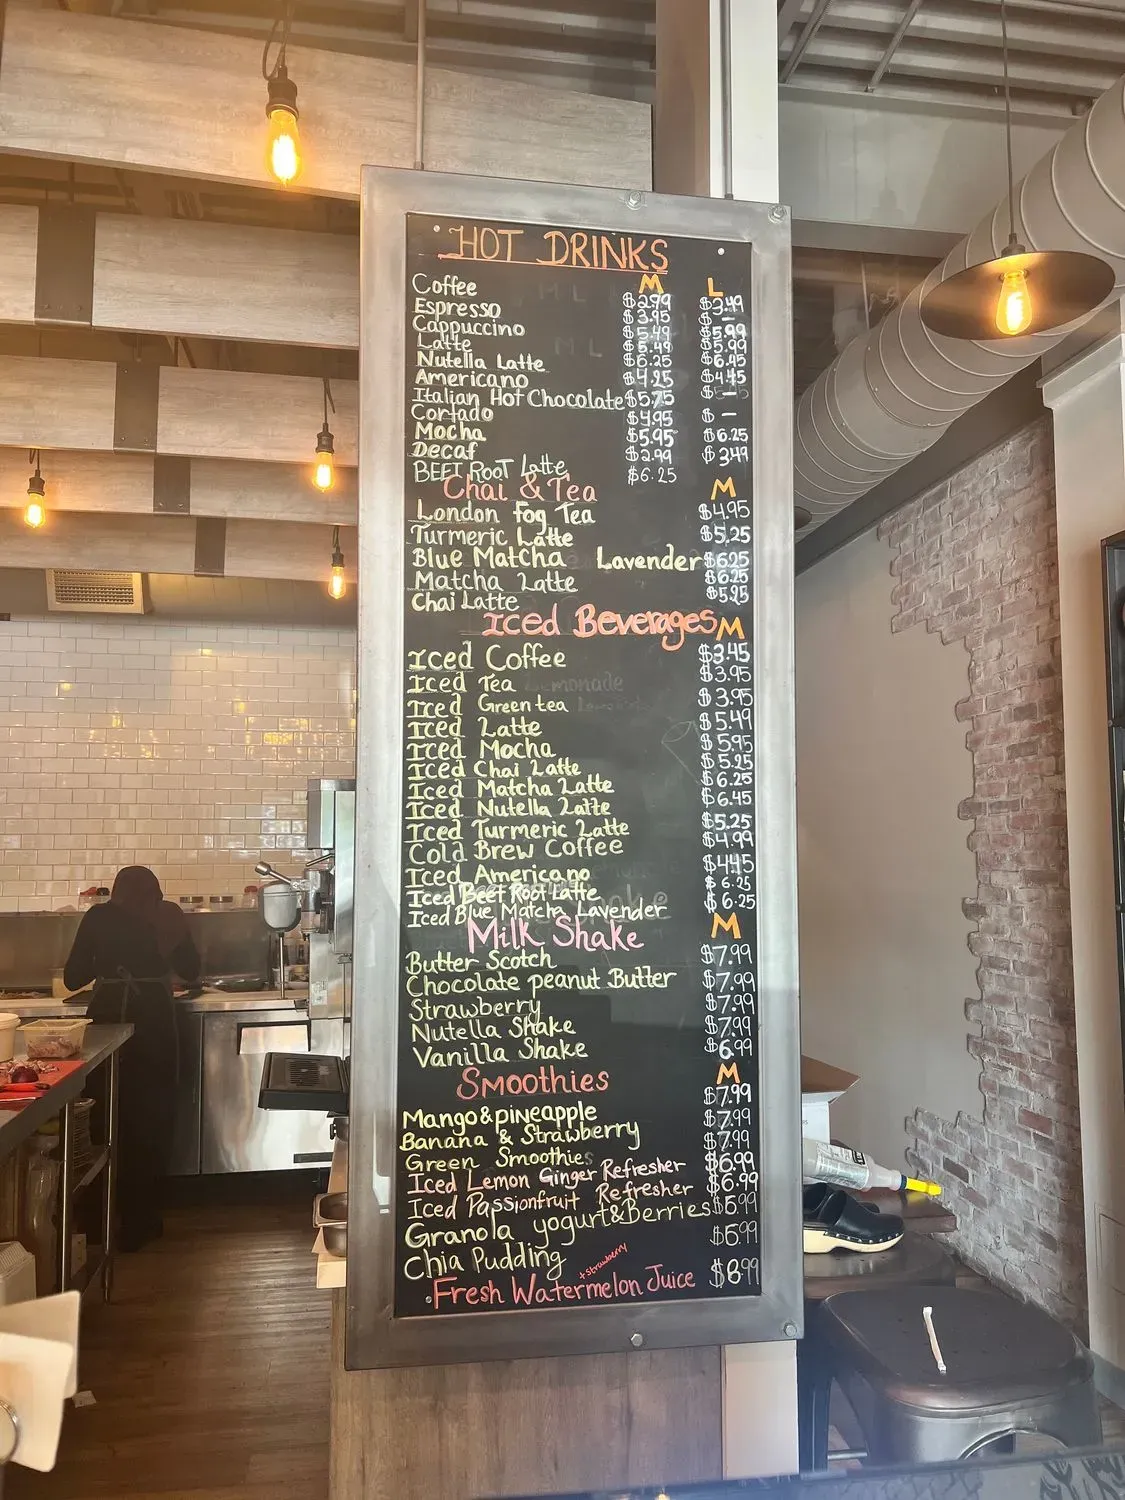 HOT DRINKS
M L
Coffee $2.99 $3.49
Espresso $3.95 $ —
Cappuccino $5.49 $5.99
Latte $5.49 $5.99
Nutella Latte $6.25 $6.45
Americano $4.25 $4.45
Italian Hot Chocolate $5.75 $ —
Cortado $4.95 $ —
Mocha $5.95 $6.25
Decaf $2.99 $3.49
BEET ROOT Latte $6.25
Chai & Tea M
London Fog Tea $4.95
Turmeric Latte $5.25
Blue Matcha Lavender $6.25
Matcha Latte $6.25
Chai Latte $5.25
Iced Beverages M
Iced Coffee $3.45
Iced Tea $3.95
Iced Green tea $3.95
Iced Latte $5.49
Iced Mocha $5.95
Iced Chai Latte $5.25
Iced Matcha Latte $6.25
Iced Nutella Latte $6.45
Iced Turmeric Latte $5.25
Cold Brew Coffee $4.99
Iced Americano $4.45
Iced Beet Root Latte $6.25
Iced Blue Matcha Lavender $6.25
Milk Shake M
Butter Scotch $7.99
Chocolate peanut Butter $7.99
Strawberry $7.99
Nutella Shake $7.99
Vanilla Shake $6.99
Smoothies M
Mango & pineapple $7.99
Banana & Strawberry $7.99
Green Smoothies $7.99
Iced Lemon Ginger Refresher $6.99
Iced Passionfruit Refresher $6.99
Granola yogurt & Berries $6.99
Chia Pudding $6.99
+ strawberry
Fresh Watermelon Juice $8.99